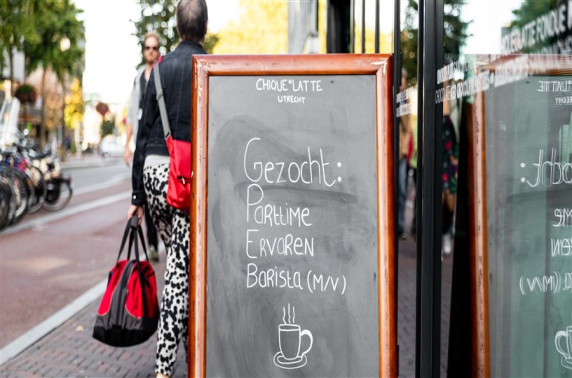 CHIQUE°LATTE
UTRECHT
Gezocht:
Parttime
Ervaren
Barista (M/V)